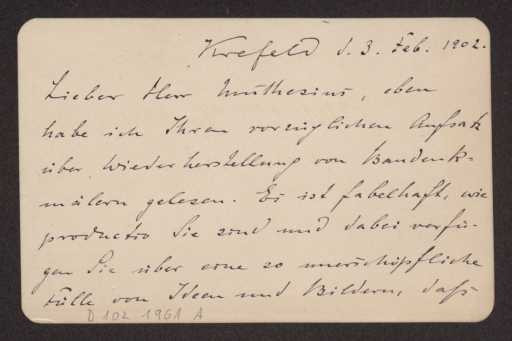 Krefeld d. 3. Feb. 1902.
Lieber Herr Muthesius, eben
habe ich Ihren vorzüglichen Aufsatz
über Wiederherstellung von Baudenk-
mälern gelesen. Es ist fabelhaft, wie
productiv Sie sind und dabei verfü-
gen Sie über eine so unerschöpfliche
Fülle von Ideen und Bildern, daß
D 102 1961 A